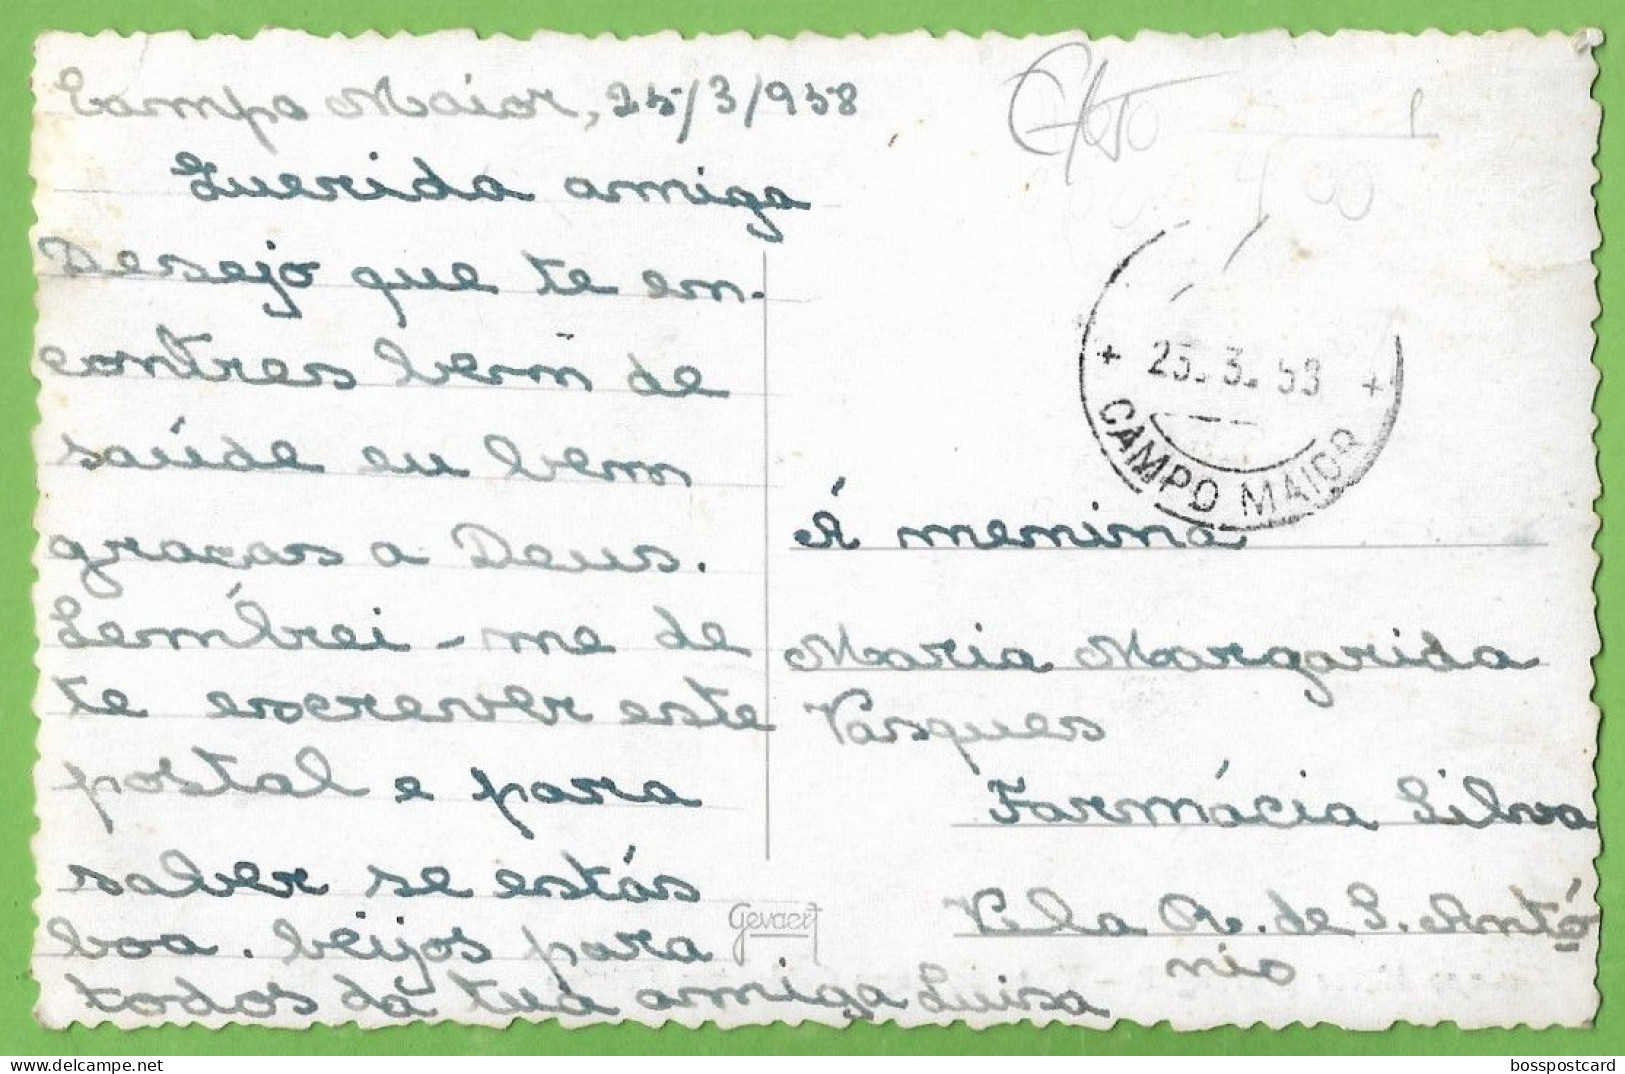 Campo Maior, 25/3/958
Querida amiga
Desejo que te en-
contres bem de
saúde eu bem
graças a Deus.
Lembrei-me de
te escrever este
postal e para
saber se estás
boa. beijos para
todos da tua amiga Luisa
25. 3. 58
CAMPO MAIOR
Á menina
Maria Margarida
Vasques
Farmácia Silva
Vila R. de S. Antó
nio
Gevaert
bosspostcard.com